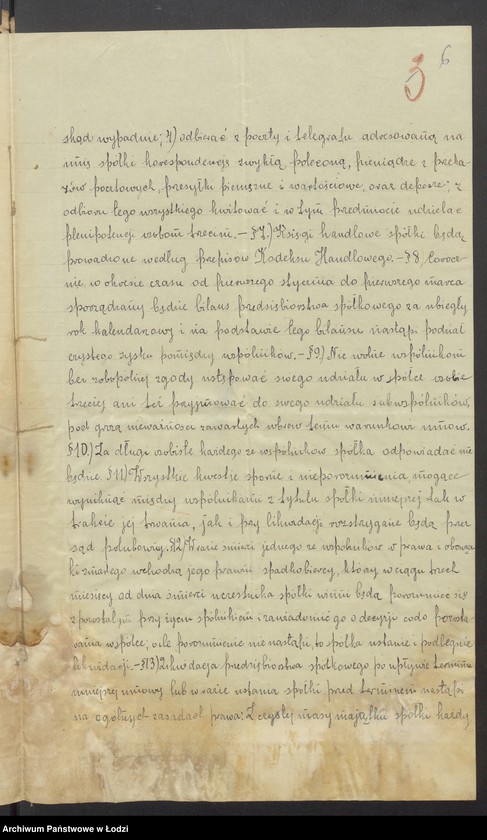 3 6
skąd wypadnie; 4) odbierać z poczty i telegrafu adresowaną na
imię spółki korespondencję zwykłą, poleconą, pieniądze z przeka-
zów pocztowych, przesyłki pieniężne i wartościowe, oraz depesze; z
odbioru tego wszystkiego kwitować i w tym przedmiocie udzielać
plenipotencji osobom trzecim. – § 7.) Księgi handlowe spółki będą
prowadzone według przepisów Kodeksu Handlowego. – § 8.) Coroc-
nie w okresie czasu od pierwszego stycznia do pierwszego marca
sporządzany będzie bilans przedsiębiorstwa spółkowego za ubiegły
rok kalendarzowy i na podstawie tego bilansu nastąpi podział
czystego zysku pomiędzy wspólników. – § 9.) Nie wolno wspólnikom
bez obopólnej zgody ustępować swego udziału w spółce osobie
trzeciej ani też przyjmować do swego udziału subwspólników,
pod grozą nieważności zawartych wbrew temu warunkowi umów.
§ 10.) Za długi osobiste każdego ze wspólników spółka odpowiadać nie
będzie. § 11) Wszystkie kwestje sporne i nieporozumienia, mogące
wyniknąć między wspólnikami z tytułu spółki niniejszej tak w
trakcie jej trwania, jak i przy likwidacji rozstrzygane będą przez
sąd polubowny. § 12) W razie śmierci jednego ze wspólników w prawa i obowiąz-
ki zmarłego wchodzą jego prawni spadkobiercy, którzy w ciągu trzech
miesięcy od dnia śmierci uczestnika spółki winni będą porozumieć się
z pozostałym przy życiu spólnikiem i zawiadomić go o decyzji co do pozosta-
wania w spółce; o ile porozumienie nie nastąpi, to spółka ustanie i podlegnie
likwidacji. – § 13) Likwidacja przedsiębiorstwa spółkowego po upływie terminu
niniejszej umowy lub w razie ustania spółki przed terminem nastąpi
na ogólnych zasadach prawa: Z czystej masy majątku spółki każdy
Archiwum Państwowe w Łodzi